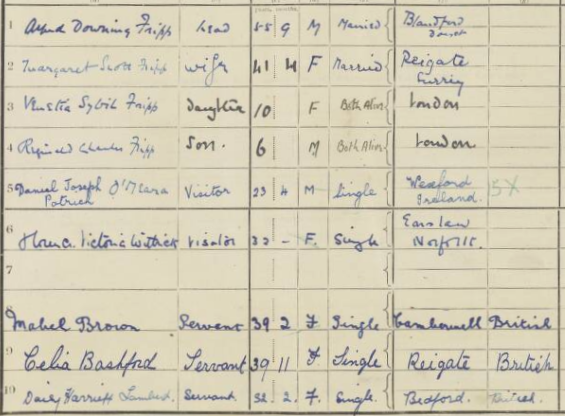 1 Alfred Downing Fripp Head 55 9 M Married Blandford Dorset
2 Margaret Scott Fripp wife 41 4 F Married Reigate Surrey
3 Sylvil Fripp Daughter 10 F Both Alive London
4 Reginald Charles Fripp Son. 6 M Both Alive London
5 Daniel Joseph O'Meara Patrick Visitor 23 4 M Single Wexford Ireland. 5X
6 Victoria Visitor - F. Single Norfolk.
7
8 Mabel Brown Servant 39 2 F Single Camberwell British
9 Celia Bashford Servant 39 11 F Single Reigate British
10 Daisy Harriett Lambert. Servant 32. 2. F. Single. Bedford. British.